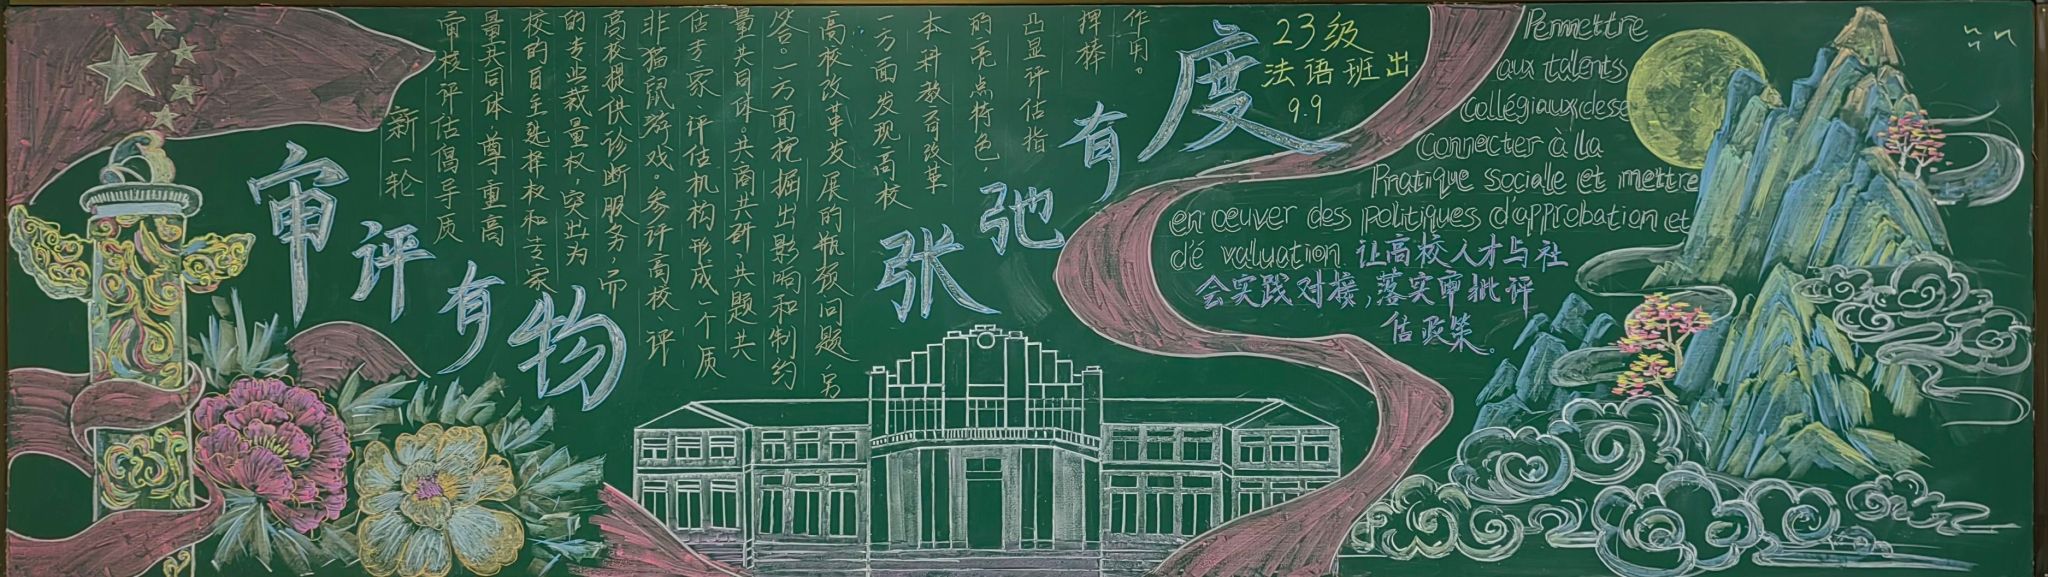 审评有物
张弛有度
新一轮
审核评估倡导质
量共同体,尊重高
校的自主选择权和专家
的专业裁量权,突出为
高校提供诊断服务,而
非猫鼠游戏。参评高校、评
估专家、评估机构形成一个质
量共同体。共商共研、共题共
答。一方面挖掘出影响和制约
高校改革发展的瓶颈问题,另
一方面发现高校
本科教育改革
的亮点特色,
凸显评估指
挥棒
作用。
23级
法语班出
9.9
Permettre
aux talents
collégiaux de se
Connecter à la
Pratique sociale et mettre
en œuver des politiques d'approbation et
d'é valuation 让高校人才与社
会实践对接,落实审批评
估政策。